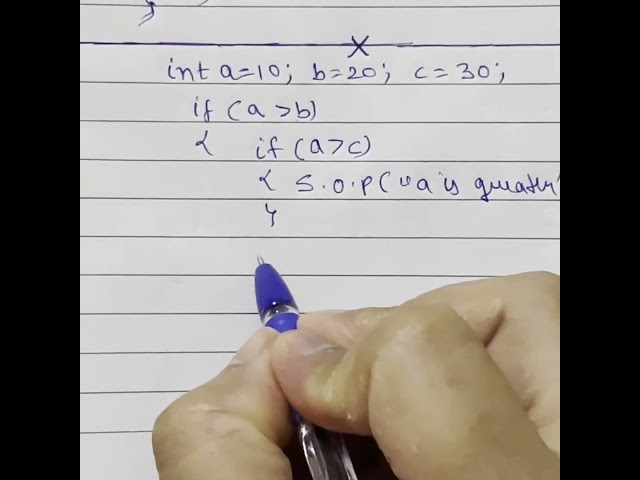 int a=10; b=20; c=30;
if (a>b)
{ if (a>c)
{ S.O.P("a is greater"
}